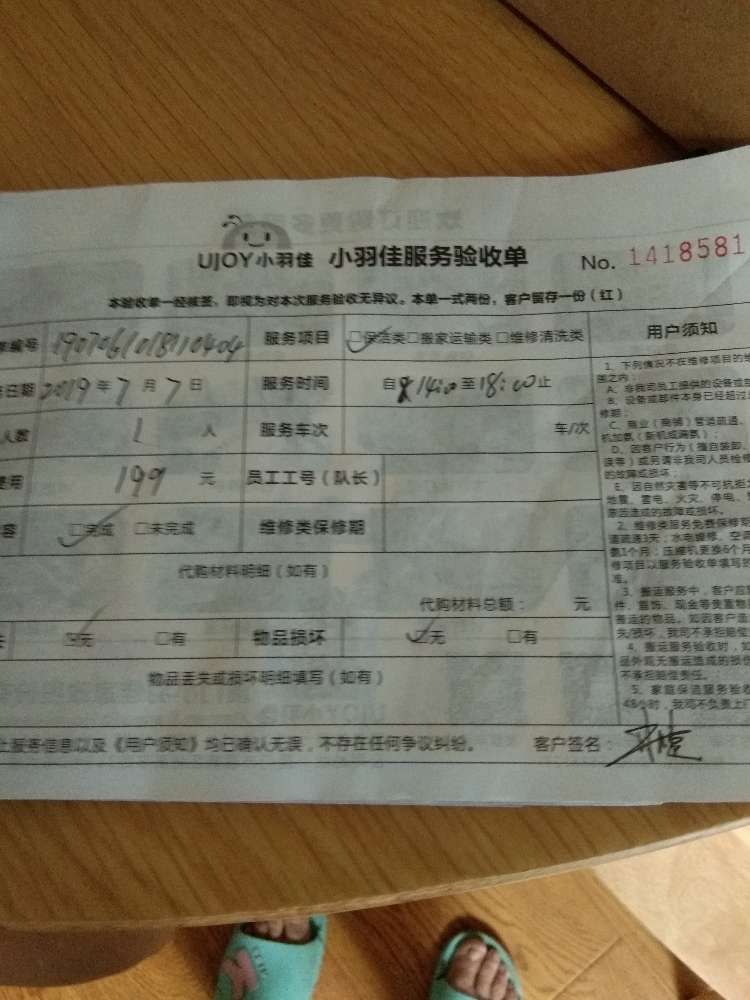 UJOY小羽佳 小羽佳服务验收单 No. 1418581
本验收单一经核签，即视为对本次服务验收无异议。本单一式两份，客户留存一份（红）
编号 1907061018110404 服务项目 □保洁类□搬家运输类□维修清洗类 用户须知
日期 2019年7月7日 服务时间 自 14:00至18:00止
人数 1 人 服务车次 车/次
费用 199 元 员工工号（队长）
容 □完成 □未完成 维修类保修期
代购材料明细（如有）
代购材料总额： 元
☑无 □有 物品损坏 ☑无 □有
物品丢失或损坏明细填写（如有）
上服务信息以及《用户须知》均已确认无误，不存在任何争议纠纷。 客户签名：
1、下列情况不在维修项目的维
围之内：
A、非我司员工提供的设备或
B、设备或部件本身已经超过
修期；
C、商业（商铺）管道疏通、
机加氨（新机或漏氨）；
D、因客户行为（擅自装卸、
误等）或另请非我司人员检修
的故障或损坏；
E、因自然灾害等不可抗拒
地震、雷电、火灾、停电、
原因造成的故障或损坏。
2、维修类服务免费保修
道疏通3天；水电维修、空调
氨1个月；压缩机更换6个月
修项目以服务验收单填写的
准。
3、搬运服务中，客户应
件、首饰、现金等贵重物
搬运的物品。如因客户
失/损坏，我司不承担赔偿
4、搬运服务验收时，如
品外观无搬运造成的损
不承担赔偿责任。
5、家庭保洁服务验收
48小时，我司不负责上门